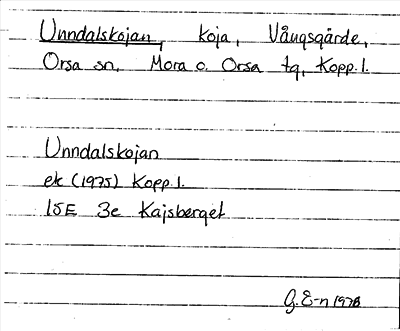 Unndalskojan, koja, Vångsgärde,
Orsa sn, Mora o. Orsa tg, Kopp.l.
Unndalskojan
ek (1975) Kopp.l.
15E 3e Kajsberget
G.E-n 1978